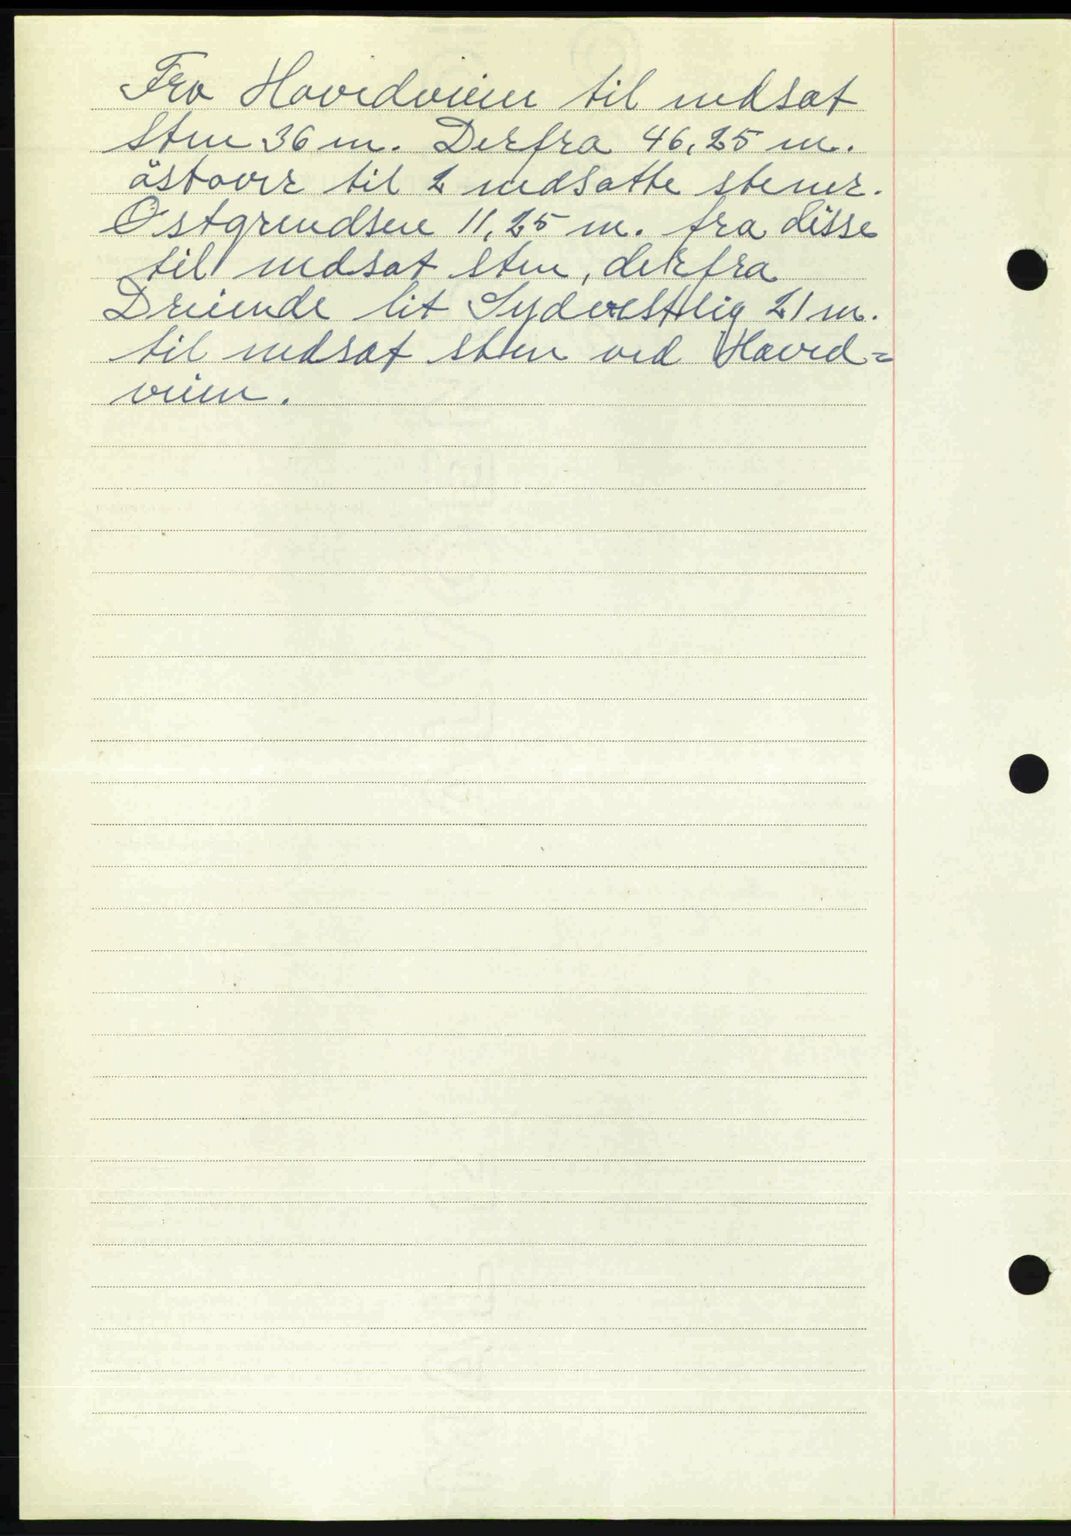 Fra Hovedveien til nedsat
Sten 36 m. Derfra 46,25 m.
östover til 2 nedsatte stener.
Østgrendsen 11,25 m. fra disse
til nedsat sten, derfra
Dreiende lit Sydvestlig 21 m.
til nedsat sten ved Hoved=
veien.